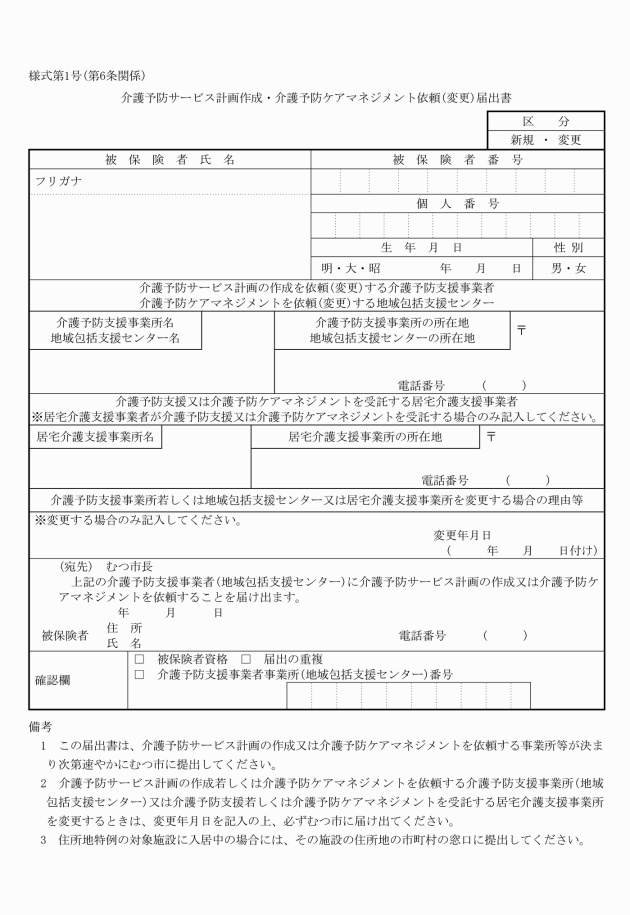 様式第1号(第6条関係)
介護予防サービス計画作成・介護予防ケアマネジメント依頼(変更)届出書
区　分
新規 ・ 変更
被 保 険 者 氏 名
被 保 険 者 番 号
フリガナ
個 人 番 号
生 年 月 日
性 別
明・大・昭　　　年　　月　　日
男・女
介護予防サービス計画の作成を依頼(変更)する介護予防支援事業者
介護予防ケアマネジメントを依頼(変更)する地域包括支援センター
介護予防支援事業所名
地域包括支援センター名
介護予防支援事業所の所在地
地域包括支援センターの所在地
〒
電話番号　　(　　)
介護予防支援又は介護予防ケアマネジメントを受託する居宅介護支援事業者
※居宅介護支援事業者が介護予防支援又は介護予防ケアマネジメントを受託する場合のみ記入してください。
居宅介護支援事業所名
居宅介護支援事業所の所在地
〒
電話番号　　(　　)
介護予防支援事業所若しくは地域包括支援センター又は居宅介護支援事業所を変更する場合の理由等
※変更する場合のみ記入してください。
変更年月日
(　　年　　月　　日付け)
(宛先)　むつ市長
上記の介護予防支援事業者(地域包括支援センター)に介護予防サービス計画の作成又は介護予防ケ
アマネジメントを依頼することを届け出ます。
年　　月　　日
被保険者
住　所
氏　名
電話番号　　(　　)
確認欄
□　被保険者資格　□　届出の重複
□　介護予防支援事業者事業所(地域包括支援センター)番号
備考
1　この届出書は、介護予防サービス計画の作成又は介護予防ケアマネジメントを依頼する事業所等が決ま
り次第速やかにむつ市に提出してください。
2　介護予防サービス計画の作成若しくは介護予防ケアマネジメントを依頼する介護予防支援事業所(地域
包括支援センター)又は介護予防支援若しくは介護予防ケアマネジメントを受託する居宅介護支援事業所
を変更するときは、変更年月日を記入の上、必ずむつ市に届け出てください。
3　住所地特例の対象施設に入居中の場合には、その施設の住所地の市町村の窓口に提出してください。